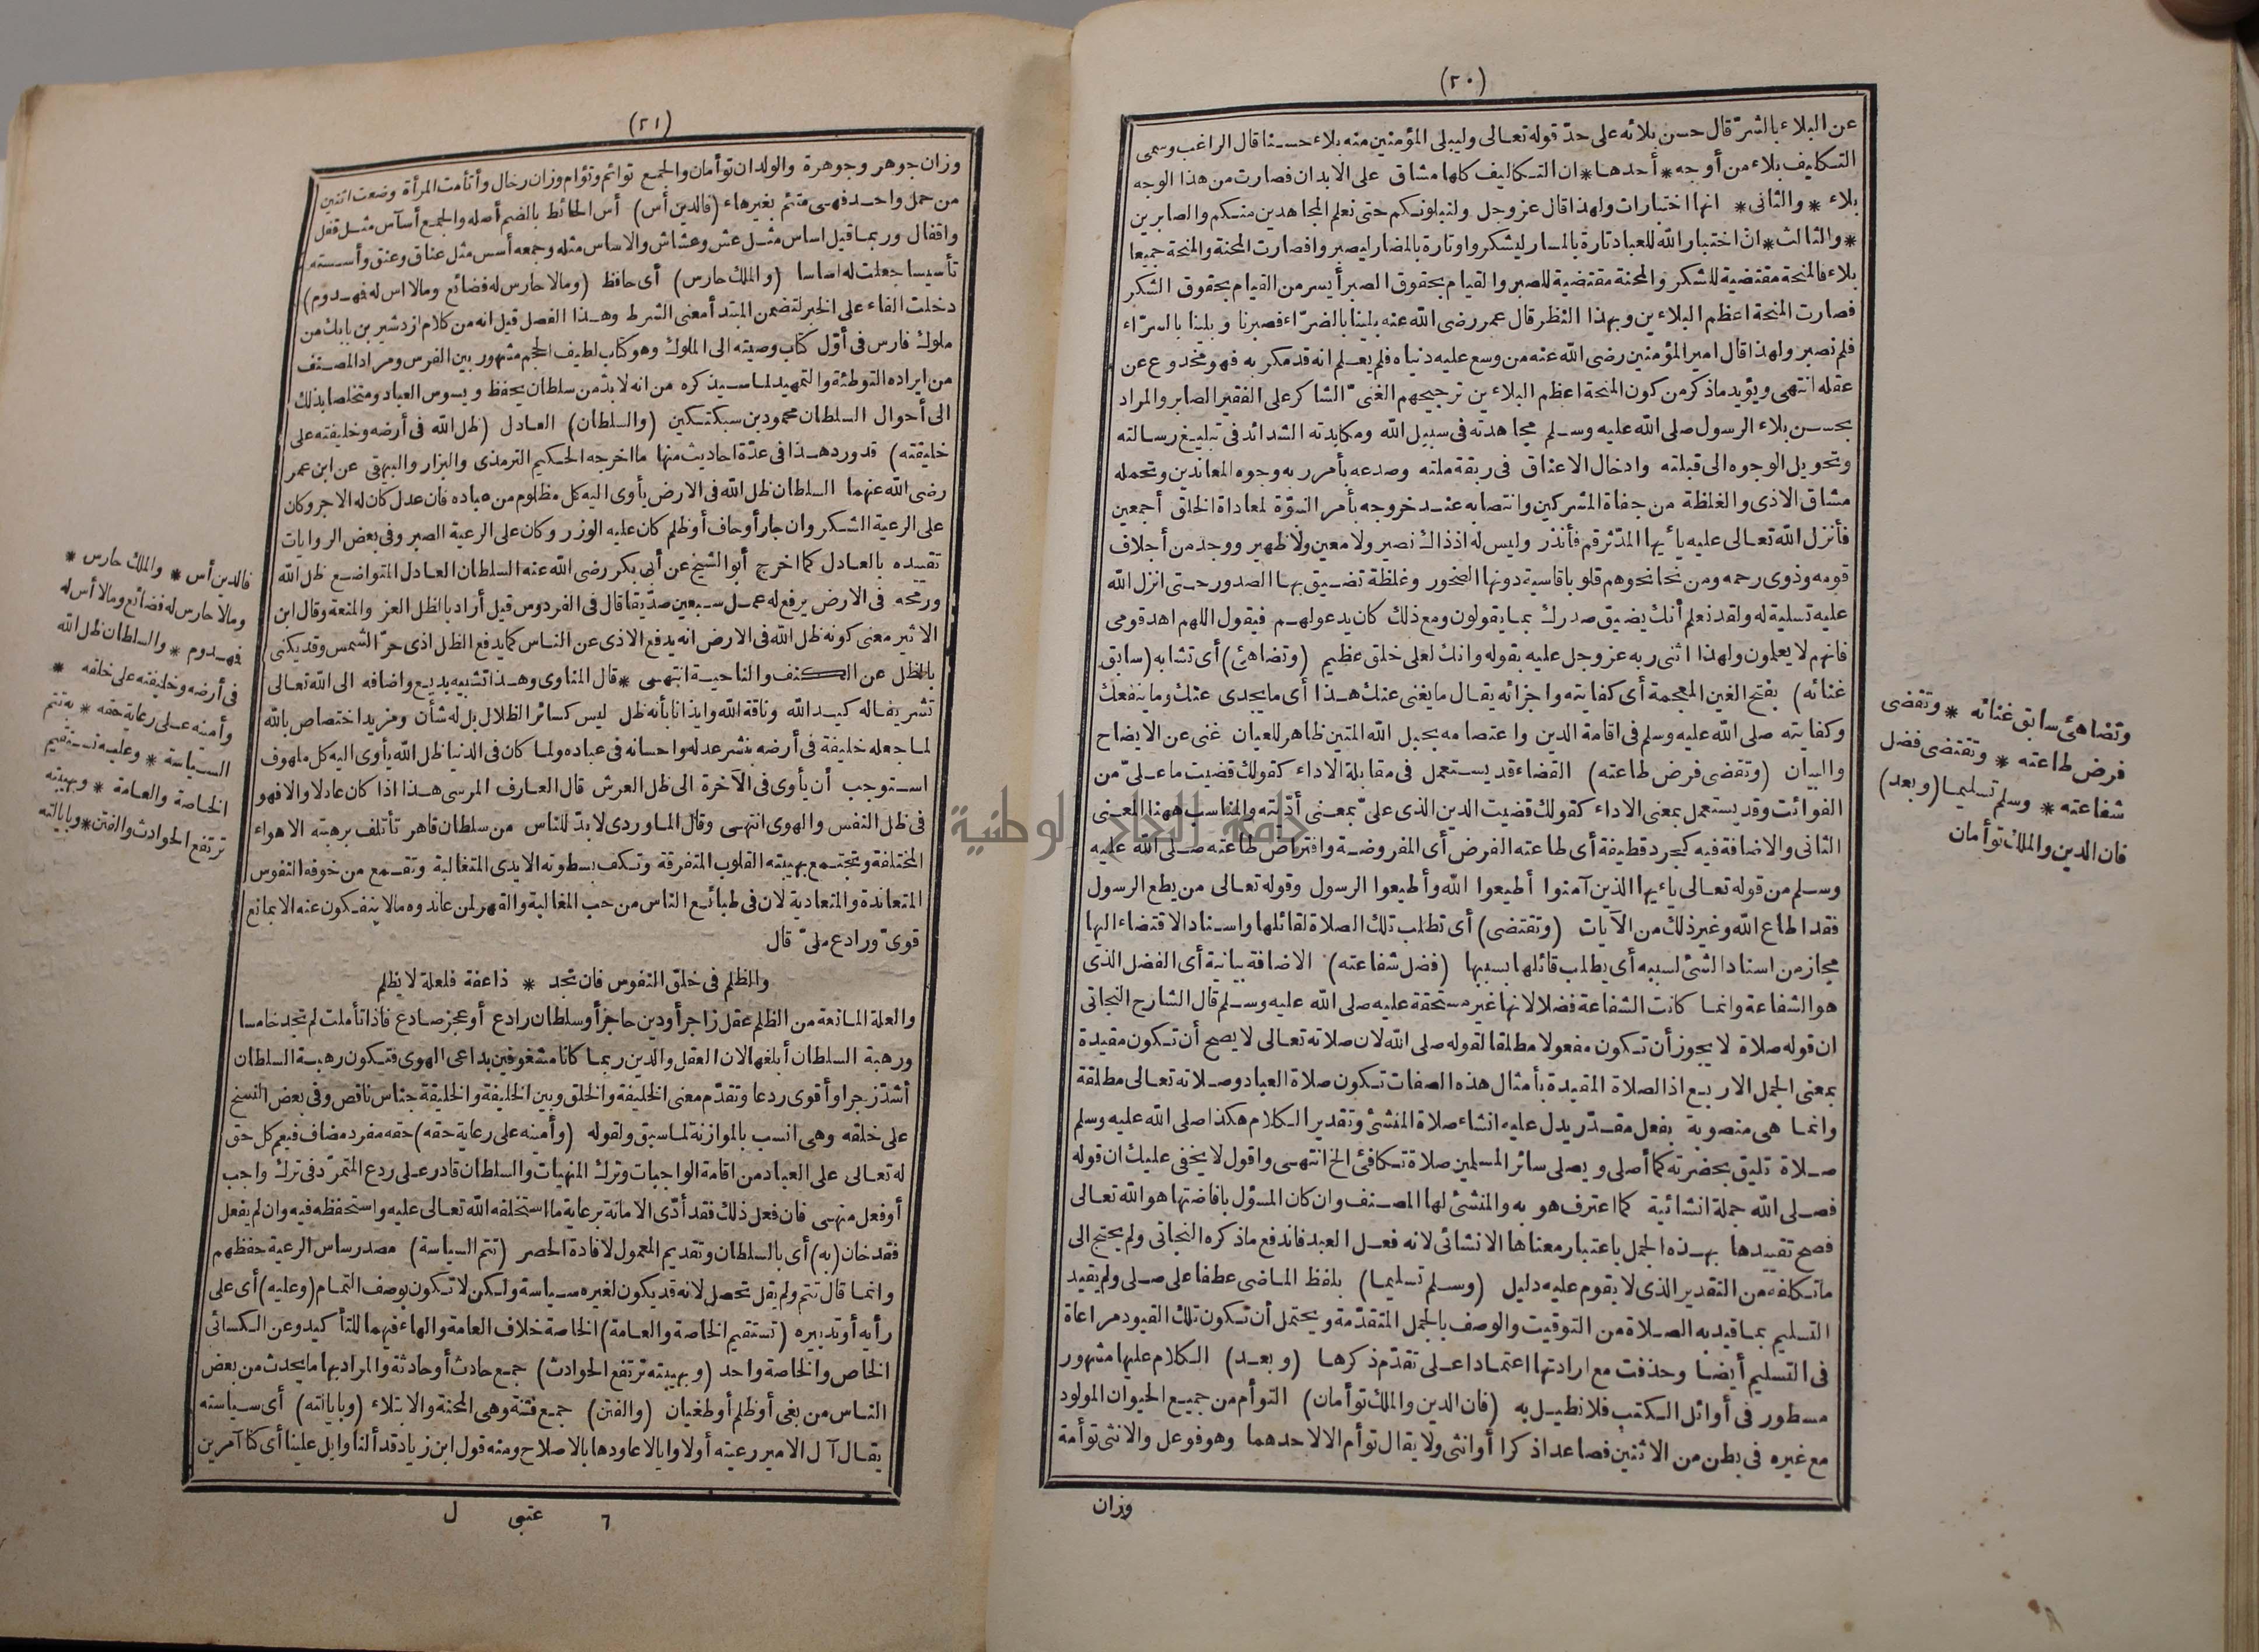 (٢٠)
عن البلاء بالشرّ قال حسن بلائه على حدّ قوله تعالى وليبلى المؤمنين منه بلاء حسنا قال الراغب وسمى
التكليف بلاء من أوجه * أحدها * ان التكاليف كلها مشاق على الابدان فصارت من هذا الوجه
بلاء * والثانى * انها اختبارات ولهذا قال عز وجل ولنبلونكم حتى نعلم المجاهدين منكم والصابرين
* والثالث * انّ اختبار الله للعباد تارة بالمسار ليشكروا وتارة بالمضار ليصبروا فصارت المحنة والمنحة جميعا
بلاء فالمنحة مقتضية للشكر والمحنة مقتضية للصبر والقيام بحقوق الصبر أيسر من القيام بحقوق الشكر
فصارت المنحة اعظم البلاءين وبهذا النظر قال عمر رضى الله عنه بلينا بالضرّاء فصبرنا وبلينا بالسرّاء
فلم نصبر ولهذا قال امير المؤمنين رضى الله عنه من وسع عليه دنياه فلم يعلم انه قد مكر به فهو مخدوع عن
عقله انتهى ويؤيد ما ذكر من كون المنحة اعظم البلاءين ترجيحهم الغنىّ الشاكر على الفقير الصابر والمراد
بحسن بلاء الرسول صلى الله عليه وسلم مجاهدته فى سبيل الله ومكابدته الشدائد فى تبليغ رسالته
وتحويل الوجوه الى قبلته وادخال الاعناق فى ربقة ملته وصدعه بأمر ربه وجوه المعاندين وتحمله
مشاق الاذى والغلظة من جفاة المشركين وانتصابه عند خروجه بأمر النبوّة لمعاداة الخلق أجمعين
فأنزل الله تعالى عليه يأيها المدّثر قم فأنذر وليس له اذ ذاك نصير ولا معين ولا ظهير ووجد من أجلاف
قومه وذوى رحمه ومن نحا نحوهم قلوبا قاسية دونها الصخور وغلظة تضيق بها الصدور حتى انزل الله
عليه تسلية له ولقد نعلم أنك يضيق صدرك بما يقولون ومع ذلك كان يدعو لهم فيقول اللهم اهد قومى
فانهم لا يعلمون ولهذا اثنى ربه عز وجل عليه بقوله وانك لعلى خلق عظيم (وتضاهئ) أى تشابه (سابق
غنائه) بفتح الغين المعجمة أى كفايته واجزائه يقال ما يغنى عنك هذا أى ما يجدى عنك وما ينفعك
وكفايته صلى الله عليه وسلم فى اقامة الدين واعتصامه بحبل الله المتين ظاهر للعيان غنى عن الايضاح
والبيان (وتقضى فرض طاعته) القضاء قد يستعمل فى مقابلة الاداء كقولك قضيت ما علىّ من
الفوائت وقد يستعمل بمعنى الاداء كقولك قضيت الدين الذى علىّ بمعنى أدّيته والمناسب ههنا المعنى
الثانى والاضافة فيه كجرد قطيفة أى طاعته الفرض أى المفروضة وافتراض طاعته صلى الله عليه
وسلم من قوله تعالى يأيها الذين آمنوا أطيعوا الله وأطيعوا الرسول وقوله تعالى من يطع الرسول
فقد اطاع الله وغير ذلك من الآيات (وتقتضى) أى تطلب تلك الصلاة لقائلها واسناد الاقتضاء اليها
مجاز من اسناد الشئ لسببه أى يطلب قائلها بسببها (فضل شفاعته) الاضافة بيانية أى الفضل الذى
هو الشفاعة وانما كانت الشفاعة فضلا لانها غير مستحقة عليه صلى الله عليه وسلم قال الشارح النجاتى
ان قوله صلاة لا يجوز أن تكون مفعولا مطلقا لقوله صلى الله لان صلاته تعالى لا يصح أن تكون مقيدة
بمعنى الجمل الاربع اذ الصلاة المقيدة بأمثال هذه الصفات تكون صلاة العباد وصلاته تعالى مطلقة
وانما هى منصوبة بفعل مقدّر يدل عليه انشاء صلاة المنشئ وتقدير الكلام هكذا صلى الله عليه وسلم
صلاة تليق بحضرته كما أصلى ويصلى سائر المسلمين صلاة تكافئ الخ انتهى واقول لا يخفى عليك ان قوله
فصلى الله جملة انشائية كما اعترف هو به والمنشئ لها المصنف وان كان المسؤل بافاضتها هو الله تعالى
فصح تقييدها بهذه الجمل باعتبار معناها الانشائى لانه فعل العبد فاندفع ما ذكره النجاتى ولم يحتج الى
ما تكلفه من التقدير الذى لا يقوم عليه دليل (وسلم تسليما) بلفظ الماضى عطفا على صلى ولم يقيد
التسليم بما قيد به الصلاة من التوقيت والوصف بالجمل المتقدّمة ويحتمل أن تكون تلك القيود مراعاة
فى التسليم أيضا وحذفت مع ارادتها اعتمادا على تقدّم ذكرها (وبعد) الكلام عليها مشهور
مسطور فى أوائل الكتب فلا نطيل به (فان الدين والملك توأمان) التوأم من جميع الحيوان المولود
مع غيره فى بطن من الاثنين فصاعدا ذكرا أو انثى ولا يقال توأم الا لاحدهما وهو فوعل والانثى توأمة
وزان
وتضاهئ سابق غنائه * وتقضى
فرض طاعته * وتقتضى فضل
شفاعته * وسلم تسليما (وبعد)
فان الدين والملك توأمان
(٢١)
وزان جوهر وجوهرة والولدان توأمان والجمع توائم وتؤام وزان رخال وأتأمت المرأة وضعت اثنين
من حمل واحد فهى متئم بغير هاء (فالدين أس) أس الحائط بالضم أصله والجمع أساس مثل قفل
واقفال وربما قيل اساس مثل عش وعشاش والاساس مثله وجمعه أسس مثل عناق وعنق وأسسته
تأسيسا جعلت له اساسا (والملك حارس) أى حافظ (وما لا حارس له فضائع وما لا اس له فهدوم)
دخلت الفاء على الخبر لتضمن المبتدأ معنى الشرط وهذا الفصل قيل انه من كلام ازدشير بن بابك من
ملوك فارس فى أوّل كتاب وصيته الى الملوك وهو كتاب لطيف الحجم مشهور بين الفرس ومراد المصنف
من ايراده التوطئة والتمهيد لما سيذكره من انه لا بدّ من سلطان يحفظ ويسوس العباد ومتخلصا بذلك
الى أحوال السلطان محمود بن سبكتكين (والسلطان) العادل (ظل الله فى أرضه وخليفته على
خليقته) قد ورد هذا فى عدّة احاديث منها ما اخرجه الحكيم الترمذى والبزار والبيهقى عن ابن عمر
رضى الله عنهما السلطان ظل الله فى الارض يأوى اليه كل مظلوم من عباده فان عدل كان له الاجر وكان
على الرعية الشكر وان جار أو حاف أو ظلم كان عليه الوزر وكان على الرعية الصبر وفى بعض الروايات
تقييده بالعادل كما اخرج أبو الشيخ عن أبى بكر رضى الله عنه السلطان العادل المتواضع ظل الله
ورمحه فى الارض يرفع له عمل سبعين صدّيقا قال فى الفردوس قيل أراد بالظل العز والمنعة وقال ابن
الاثير معنى كونه ظل الله فى الارض انه يدفع الاذى عن الناس كما يدفع الظل اذى حرّ الشمس وقد يكنى
بالظل عن الكنف والناحية انتهى * قال المناوى وهذا تشبيه بديع واضافه الى الله تعالى
تشريفا له كبيد الله وناقة الله وايذانا بأنه ظل ليس كسائر الظلال بل له شأن ومزيد اختصاص بالله
لما جعله خليفة فى أرضه ينشر عدله واحسانه فى عباده ولما كان فى الدنيا ظل الله يأوى اليه كل ملهوف
استوجب أن يأوى فى الآخرة الى ظل العرش قال العارف المرسى هذا اذا كان عادلا والا فهو
فى ظل النفس والهوى انتهى وقال الماوردى لا بدّ للناس من سلطان قاهر تأتلف برهبته الاهواء
المختلفة وتجتمع بهيبته القلوب المتفرقة وتكف بسطوته الايدى المتغالبة وتقمع من خوفه النفوس
المتعاندة والمتعادية لان فى طبائع الناس من حب المغالبة والقهر لمن عاندوه ما لا ينفكون عنه الا بمانع
قوىّ ورادع ملىّ قال
والظلم فى خلق النفوس فان تجد * ذا عفة فلعلة لا يظلم
والعلة المانعة من الظلم عقل زاجر أو دين حاجز أو سلطان رادع أو عجز صادع فاذا تأملت لم تجد خامسا
ورهبة السلطان أبلغها لان العقل والدين ربما كانا مشغوفين بداعى الهوى فتكون رهبة السلطان
أشدّ زجرا وأقوى ردعا وتقدّم معنى الخليفة والخلق وبين الخليفة والخليقة جناس ناقص وفى بعض النسخ
على خلقه وهى انسب بالموازنة لما سبق ولقوله (وأمينه على رعاية حقه) حقه مفرد مضاف فيعم كل حق
له تعالى على العباد من اقامة الواجبات وترك المنهيات والسلطان قادر على ردع المتمرّد فى ترك واجب
أو فعل منهى فان فعل ذلك فقد أدّى الامانة برعاية ما استخلفه الله تعالى عليه واستحفظه فيه وان لم يفعل
فقد خان (به) أى بالسلطان وتقديم المعمول لافادة الحصر (تتم السياسة) مصدر ساس الرعية حفظهم
وانما قال تتم ولم يقل تحصل لانه قد يكون لغيره سياسة ولكن لا تكون بوصف التمام (وعليه) أى على
رأيه أو تدبيره (تستقيم الخاصة والعامة) الخاصة خلاف العامة والهاء فيهما للتأكيد وعن الكسائى
الخاص والخاصة واحد (وبهيبته ترتفع الحوادث) جمع حادث أو حادثة والمراد بها ما يحدث من بعض
الناس من بغى أو ظلم أو طغيان (والفتن) جمع فتنة وهى المحنة والابتلاء (وبايالته) أى سياسته
يقال آل الامير رعيته أولا وايالا عاودها بالاصلاح ومنه قول ابن زياد قد ألنا وايل علينا أى كنا آمرين
٦ عتبى ل
فالدين أس * والملك حارس *
وما لا حارس له فضائع وما لا أس له
فهدوم * والسلطان ظل الله
فى أرضه وخليفته على خلقه *
وأمينه على رعاية حقه * به تتم
السياسة * وعليه تستقيم
الخاصة والعامة * وبهيبته
ترتفع الحوادث والفتن * وبايالته
جامعة النجاح الوطنية